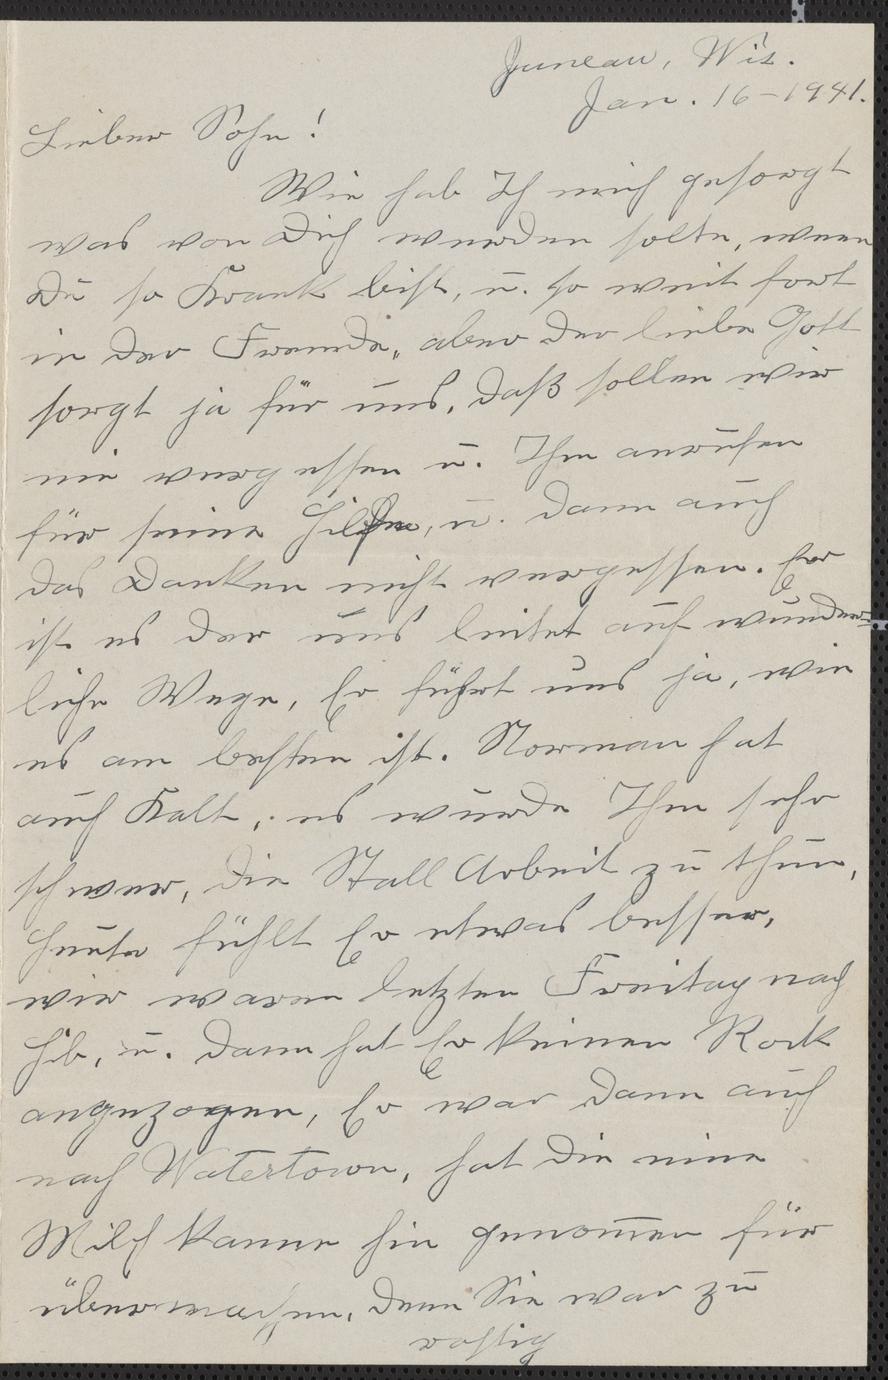 Juneau, Wis.
Jan. 16-1941.
Lieber Sohn!
Wie hab Ich mich gesorgt
was von Dich wurden solte, wenn
Du so Krank bist, u. so weit fort
in der Fremde, aber der liebe Gott
sorgt ja für uns, daß sollen wir
nie vergessen u. Ihm anrufen
für seine Hilfe, u. dann auch
das Danken nicht vergessen. Er
ist es der uns leitet auf wunder-
liche Wege, Er führt uns ja, wie
es am besten ist. Norman hat
auch Kalt, es wurde Ihm sehr
schwer, die Stall Arbeit zu thun,
Heute fühlt Er etwas besser,
wir waren letzten Freitag nach
Hib, u. dann hat Er keinen Rock
angezogen, Er war dann auch
nach Watertown, hat die eine
Milch Kanne hin genom̄en für
über machen, denn Sie war zu
rostig